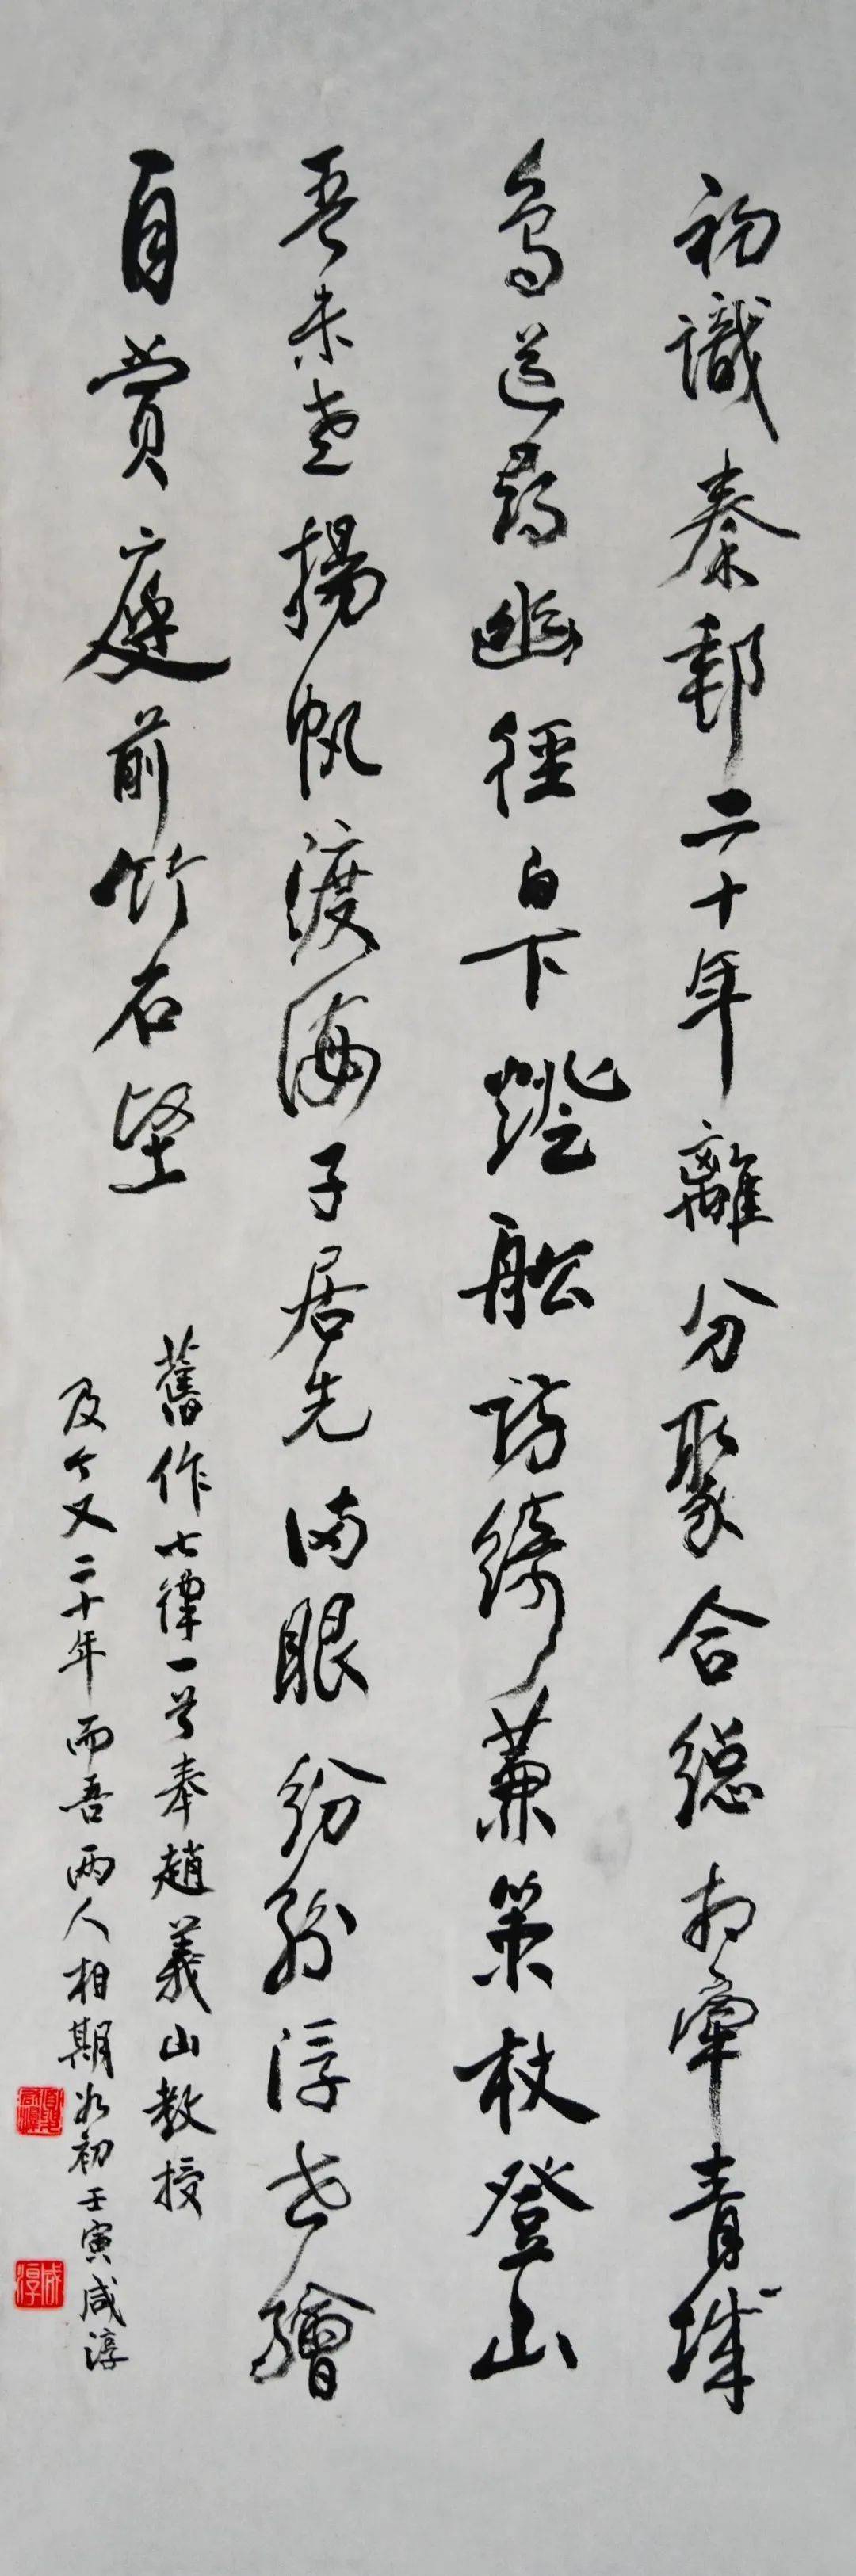 初識秦郵二十年離分聚合總相牽青城
鳥道尋幽徑白下燈船訪綺策杖登山
吾未老揚帆渡海子居先滿眼紛紜浮世繪
自賞庭前竹石堅
舊作七律一首奉趙義山教授
及今又二十年而吾兩人相期如初壬寅咸淳
咸淳